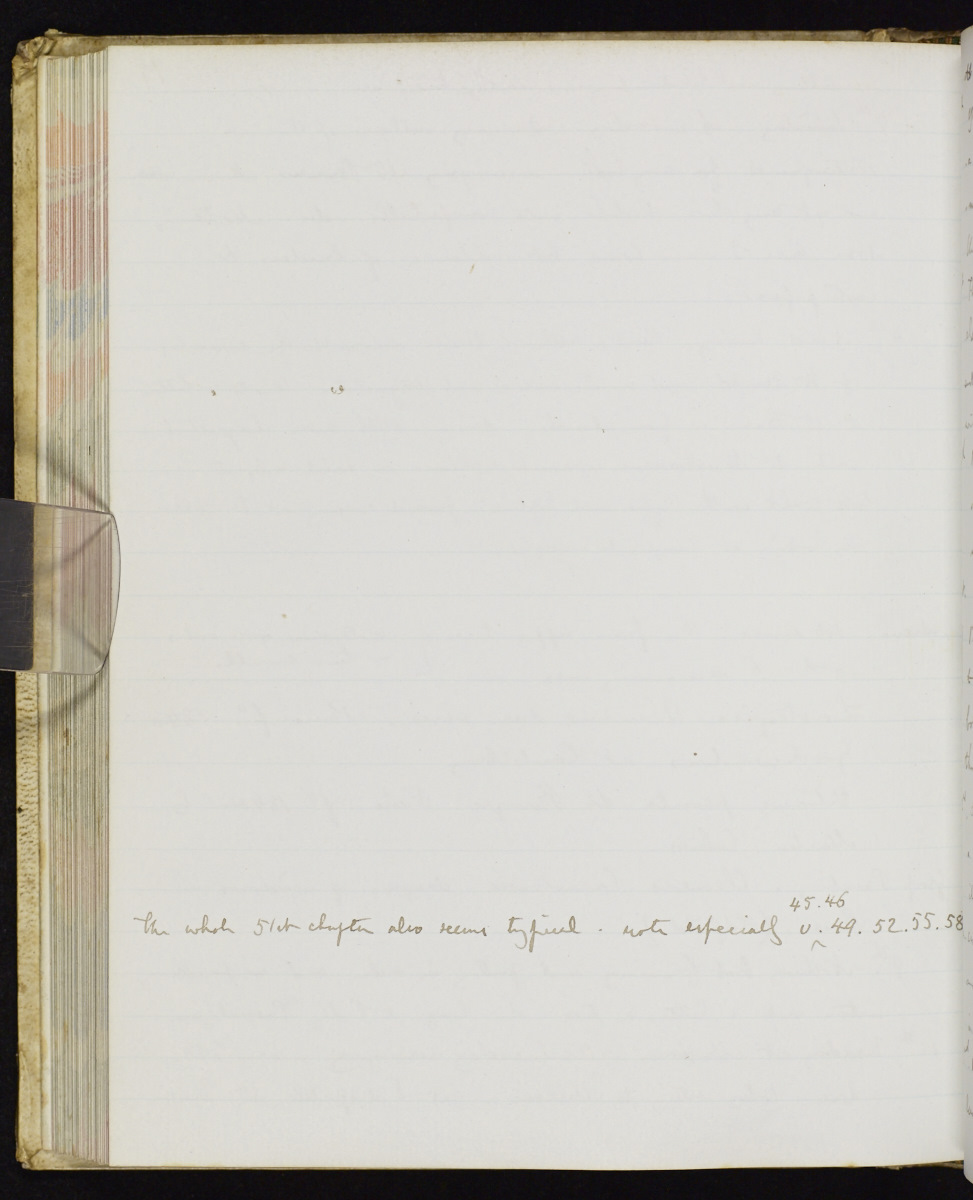 45.46
The whole 51st chapter also seems typical. note especially v. 49. 52. 55. 58